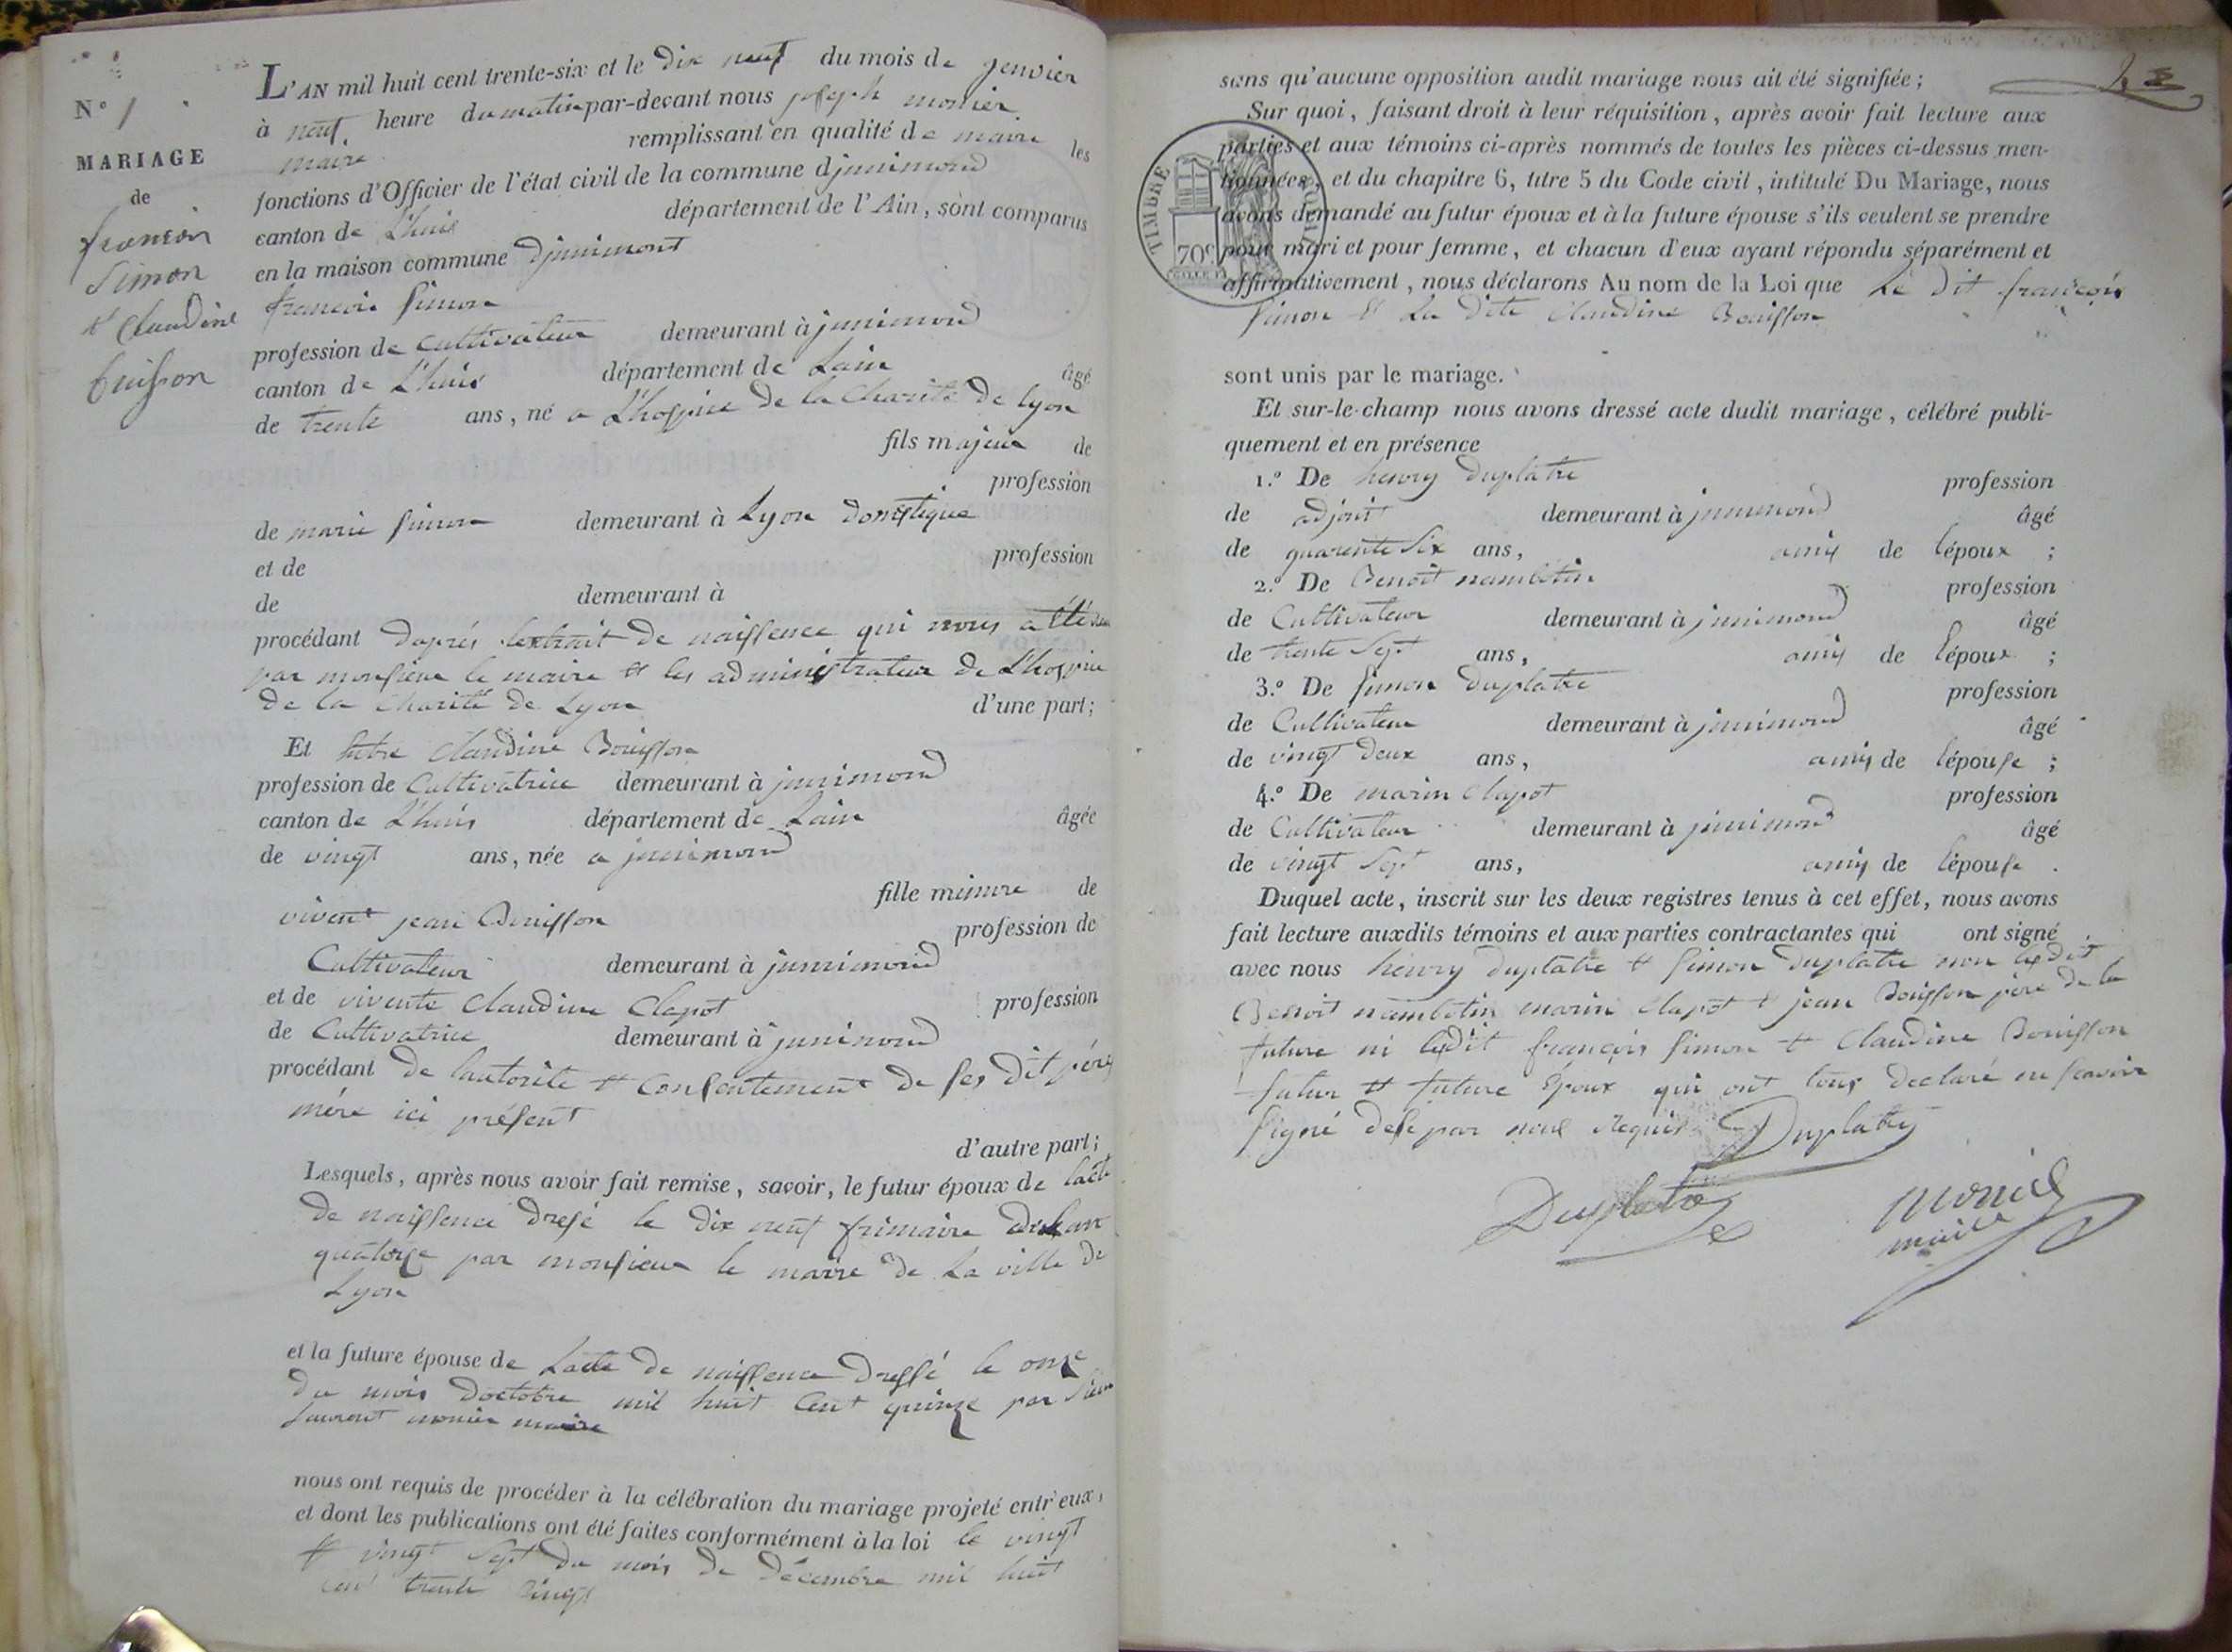 N° 1
MARIAGE
de
francois
Simon
et Claudine
buisson
L'AN mil huit cent trente-six et le dix neuf du mois de jenvier
à neuf heure du matin par-devant nous joseph monier
maire remplissant en qualité de maire les
fonctions d'Officier de l'état civil de la commune djunimond
canton de L'huis département de l'Ain, sont comparus
en la maison commune djunimont
francois simon
profession de cultivateur demeurant à junimond
canton de L'huis département de Lain âgé
de trente ans, né a L'hospice de la Charité de lyon
fils majeur de
profession
de marie simon demeurant à Lyon domestique
et de profession
de demeurant à
procédant daprés lextrait de naissence qui nous a été
par monsieur le maire et les administrateur de L'hospice
de la Charité de Lyon d'une part;
Et Claudine Bouisson
profession de Cultivatrice demeurant à junimond
canton de L'huis département de Lain âgée
de vingt ans, née a junimond
fille mineure de
vivent jean Bouisson profession de
Cultivateur demeurant à junimond
et de vivente Claudine Clapot profession
de Cultivatrice demeurant à junimond
procédant de lautorité et Consentement de ses dit père
mére ici présent
d'autre part;
Lesquels, après nous avoir fait remise, savoir, le futur époux de lacte
de naissence dresé le dix neuf frimaire de lan
quatorze par monsieur le maire de La ville de
Lyon
et la future épouse de Lacte de naissence dressé le onze
du mois doctobre mil huit Cent quinze par Sieur
Laurent monier maire
nous ont requis de procéder à la célébration du mariage projeté entr'eux,
et dont les publications ont été faites conformément à la loi le vingt
et vingt Sept du mois de décembre mil huit
cent trente cinq
sans qu'aucune opposition audit mariage nous ait été signifiée;
Sur quoi, faisant droit à leur réquisition, après avoir fait lecture aux
parties et aux témoins ci-après nommés de toutes les pièces ci-dessus men-
tionnées, et du chapitre 6, titre 5 du Code civil, intitulé Du Mariage, nous
avons demandé au futur époux et à la future épouse s'ils veulent se prendre
pour mari et pour femme, et chacun d'eux ayant répondu séparément et
affirmativement, nous déclarons Au nom de la Loi que Le dit francois
simon et La dite Claudine Bouisson
TIMBRE ROYAL
70c
sont unis par le mariage.
Et sur-le-champ nous avons dressé acte dudit mariage, célébré publi-
quement et en présence
1.° De henry duplatre profession
de adjoint demeurant à junimond âgé
de quarente Six ans, amis de lépoux ;
2.° De Benoit nambotin profession
de Cultivateur demeurant à junimond âgé
de trente Sept ans, amis de lépoux ;
3.° De simon duplatre profession
de Cultivateur demeurant à junimond âgé
de vingt deux ans, amis de lépouse ;
4.° De marin Clapot profession
de Cultivateur demeurant à junimond âgé
de vingt Sept ans, amis de lépouse .
Duquel acte, inscrit sur les deux registres tenus à cet effet, nous avons
fait lecture auxdits témoins et aux parties contractantes qui ont signé
avec nous henry duplatre et simon duplatre non lesdit
Benoit nambotin marin Clapot et jean Bouisson pére de la
future ni lesdit françois simon et Claudine Bouisson
futur et future époux qui ont tous declaré ne scavoir
signé dese par nous requis Duplatre
Duplatre
monier
maire